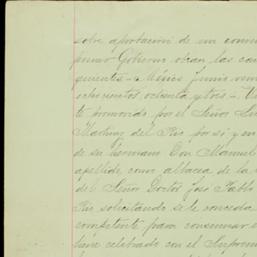 sobre aportacion de un comun
primer Gobierno obran las con
guientes.- México Junio vein
ochocientos, ochenta y tres.- V
te promovido por el Señor
Martinez del Rio por sí y en
de su hermano Don Manuel
apellido, como albacea de la
del Señor Doctor José Pablo
Rio solicitando se le conceda
competente para consumar e
tiene celebrado con el Suprem